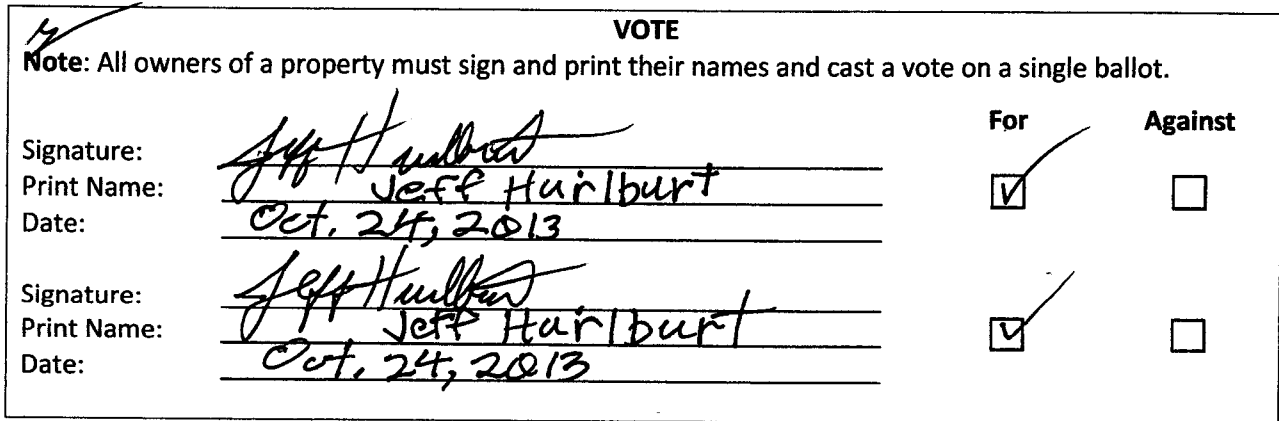 VOTE
Note: All owners of a property must sign and print their names and cast a vote on a single ballot.
For Against
Signature: Jeff Hurlburt
Print Name: Jeff Hurlburt
Date: Oct. 24, 2013
Signature: Jeff Hurlburt
Print Name: Jeff Hurlburt
Date: Oct. 24, 2013